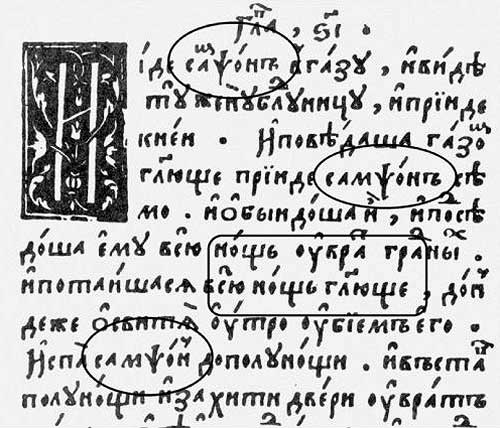 Гл҃а , ѕ҃і .
И і́де саᲅѱо́нъ вга́зу , и҆ви́дѣ
тꙋ̀женꙋблꙋ́ницꙋ , и҆прїи́де
кне́и . И҆повѣ́даша га́зоⷨ
гл҃юще прїи́де самѱо́нъ сѣ́
мо . и҆ѻ҆быидо́ша и҆̀ , и҆посѣ
до́ша є҆мꙋ̀ всю̀ но́щь ᲂу҆вра́ⷮ гра́ⷣныⷯ .
и҆потаи́шасѧ всю̀ но́щь гл҃юще , до́ⷩ
деже ѻ҆свита́ⷮ ᲂу҆́тро ᲂу҆бїе́мъ єго̀ .
И҆спа̀ самѱо́ⷩ дополꙋно́щи . и҆въста̀ⷡ
полꙋно́щи и҆захити две́ри ᲂу҆вра́тъ